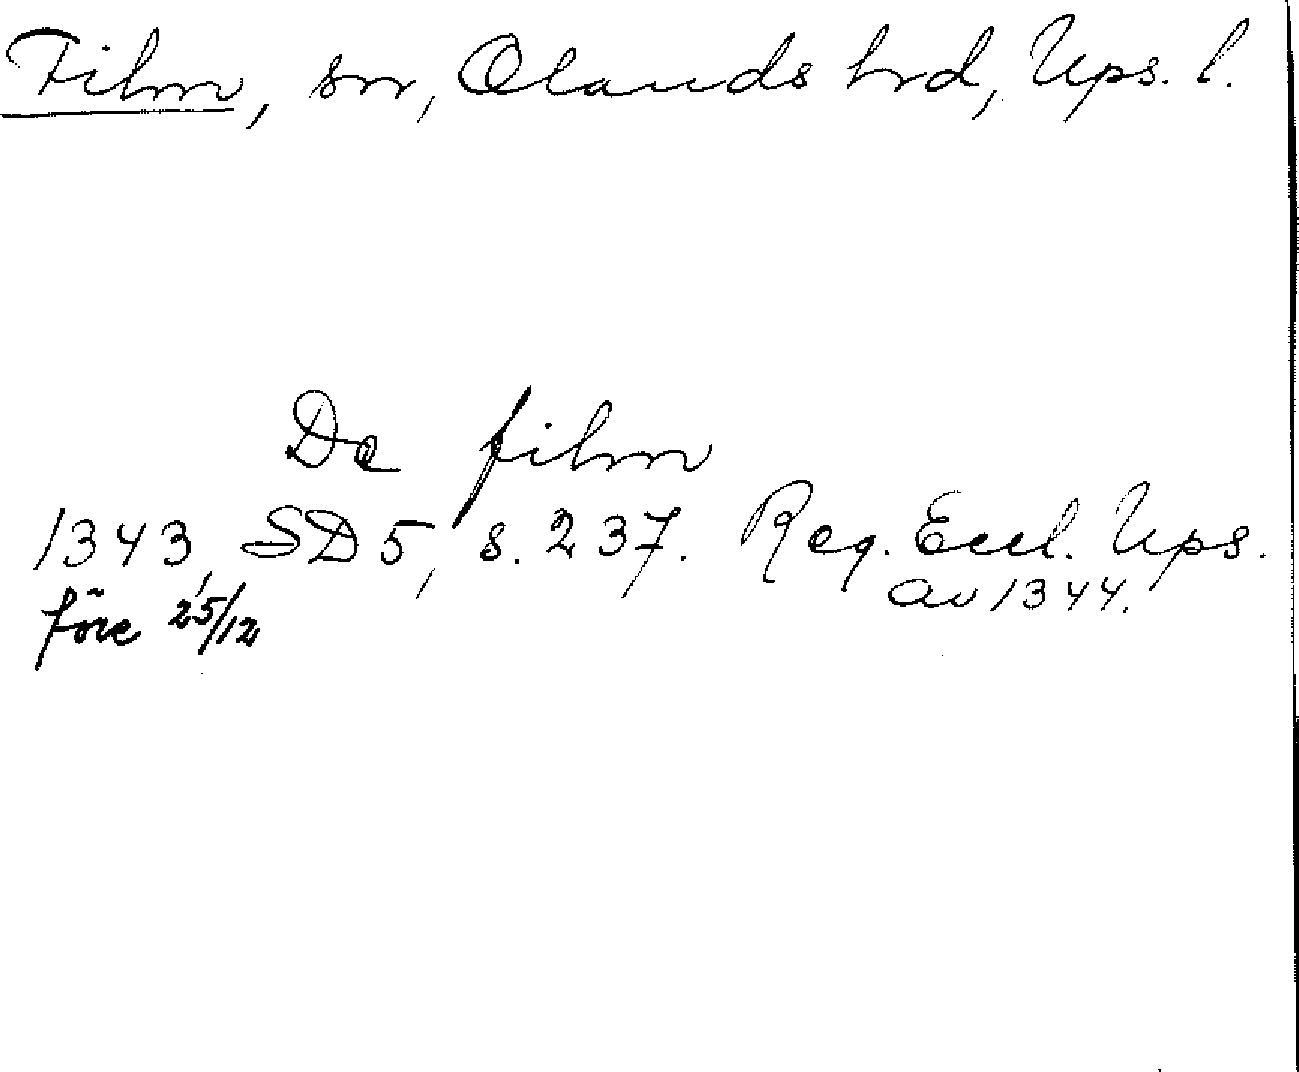 Film, sn, Olands hrd, Ups. l.
De film
1343, SD 5, s. 237. Reg. Eccl. Ups.
före 25/12 av 1344.